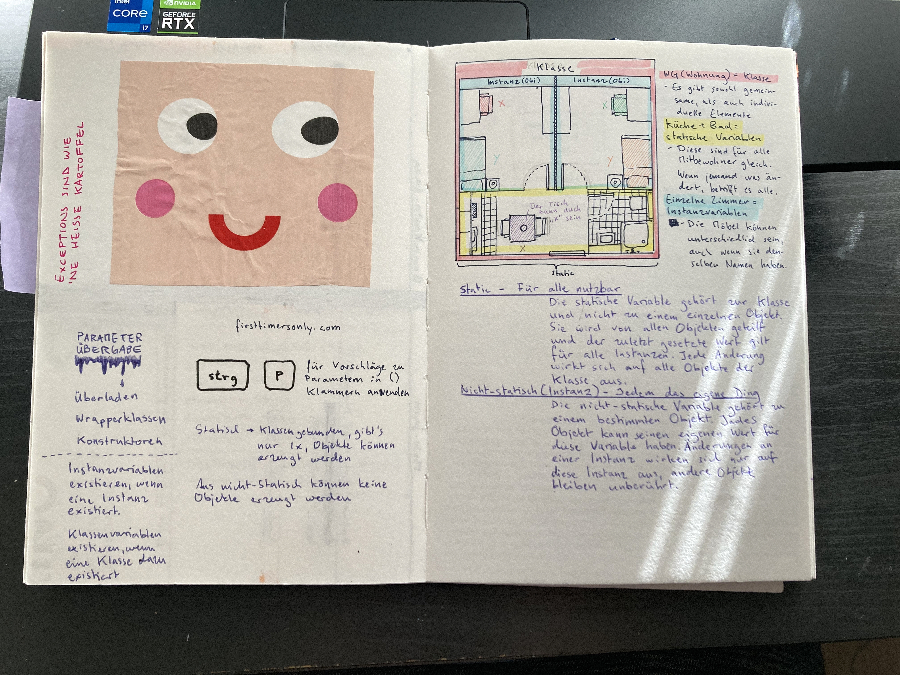 intel
CORE
i7
NVIDIA
GEFORCE
RTX
EXCEPTIONS SIND WIE
'NE HEISSE KARTOFFEL
PARAMETER
ÜBERGABE
Überladen
Wrapperklassen
Konstruktoren
Instanzvariablen
existieren, wenn
eine Instanz
existiert.
Klassenvariablen
existieren, wenn
eine Klasse dazu
existiert
firsttimersonly.com
strg
P
für Vorschläge zu
Parametern in ()
Klammern anwenden
Statisch → Klassengebunden, gibt's
nur 1x, Objekte können
erzeugt werden
Aus nicht-statisch können keine
Objekte erzeugt werden
Klasse
Instanz (Obj)
Instanz (Obj)
x
x
y
y
Der Tisch
kann auch
"x" sein
x
static
WG (Wohnung) - Klasse
- Es gibt sowohl gemein-
same, als auch indivi-
duelle Elemente
Küche + Bad =
statische Variablen
- Diese sind für alle
Mitbewohner gleich.
Wenn jemand was än-
dert, betrifft es alle.
Einzelne Zimmer =
Instanzvariablen
- Die Möbel können
unterschiedlich sein,
auch wenn sie den-
selben Namen haben.
Static - Für alle nutzbar
Die statische Variable gehört zur Klasse
und nicht zu einem einzelnen Objekt.
Sie wird von allen Objekten geteilt
und der zuletzt gesetzte Wert gilt
für alle Instanzen. Jede Änderung
wirkt sich auf alle Objekte der
Klasse aus.
Nicht-statisch (Instanz) - Jedem das eigene Ding
Die nicht-statische Variable gehört zu
einem bestimmten Objekt. Jedes
Objekt kann seinen eigenen Wert für
diese Variable haben. Änderungen an
einer Instanz wirken sich nur auf
diese Instanz aus, andere Objekte
bleiben unberührt.